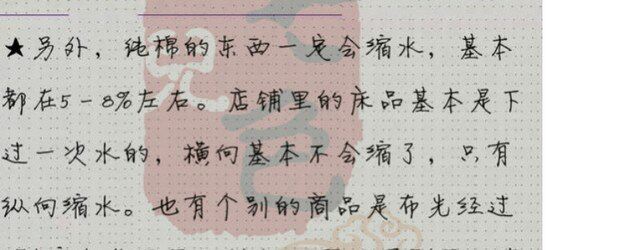 ★另外，纯棉的东西一定会缩水，基本
都在5-8%左右。店铺里的床品基本是下
过一次水的，横向基本不会缩了，只有
纵向缩水。也有个别的商品是布先经过